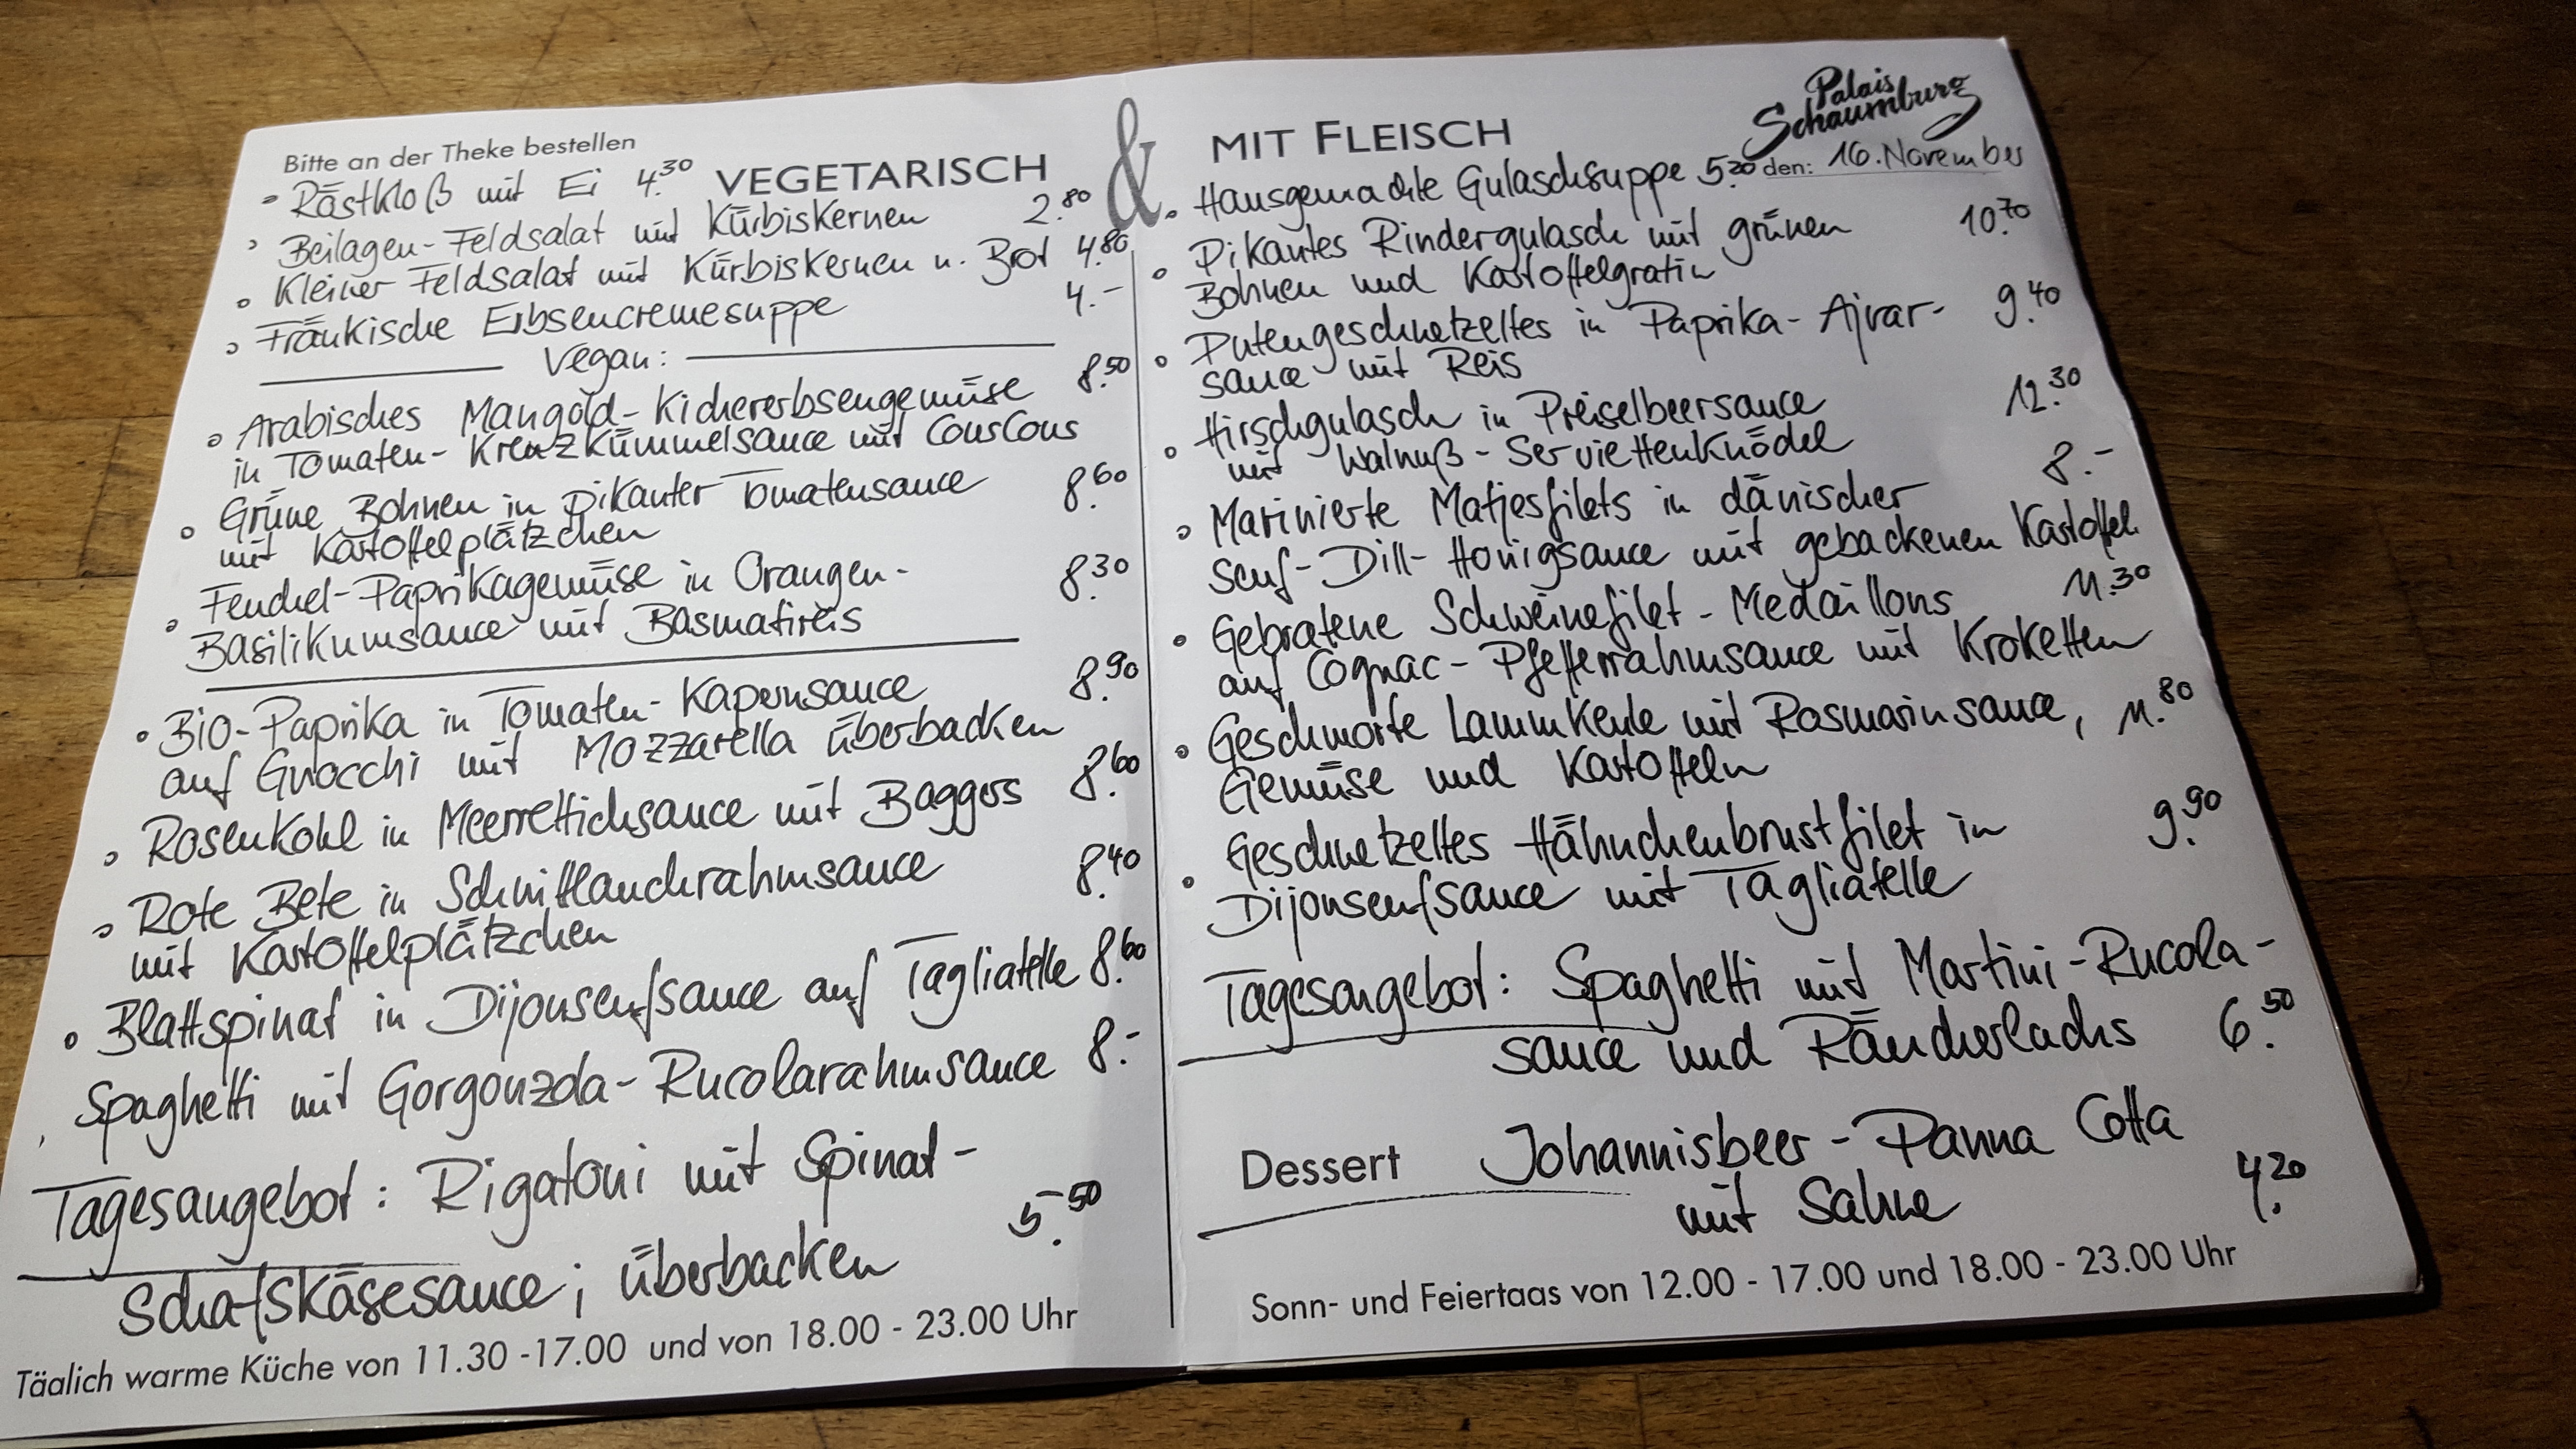 Bitte an der Theke bestellen
VEGETARISCH
• Röstkloß mit Ei 4.30
• Beilagen-Feldsalat mit Kürbiskernen 2.80
• Kleiner Feldsalat mit Kürbiskernen u. Brot 4.80
• Fränkische Erbsencremesuppe 4.-
Vegan:
• Arabisches Mangold-Kichererbsengemüse 8.50
in Tomaten-Kreuzkümmelsauce mit CousCous
• Grüne Bohnen in pikanter Tomatensauce 8.60
mit Kartoffelplätzchen
• Fenchel-Paprikagemüse in Orangen- 8.30
Basilikumsauce mit Basmatireis
• Bio-Paprika in Tomaten-Kapernsauce 8.90
auf Gnocchi mit Mozzarella überbacken
• Rosenkohl in Meerrettichsauce mit Baggers 8.60
• Rote Bete in Schnittlauchrahmsauce 8.40
mit Kartoffelplätzchen
• Blattspinat in Dijonsenfsauce auf Tagliatelle 8.60
Spaghetti mit Gorgonzola-Rucolarahmsauce 8.-
Tagesangebot: Rigatoni mit Spinat-
Schafskäsesauce; überbacken 5.50
Täglich warme Küche von 11.30 -17.00 und von 18.00 - 23.00 Uhr
&
MIT FLEISCH
Palais
Schaumburg
den: 16. November
• Hausgemachte Gulaschsuppe 5.20
• Pikantes Rindergulasch mit grünen 10.70
Bohnen und Kartoffelgratin
• Putengeschnetzeltes in Paprika-Ajvar- 9.40
sauce mit Reis
• Hirschgulasch in Preiselbeersauce 12.30
mit Walnuß-Serviettenknödel
• Marinierte Matjesfilets in dänischer 8.-
Senf-Dill-Honigsauce mit gebackenen Kartoffeln
• Gebratene Schweinefilet-Medaillons 11.30
auf Cognac-Pfefferrahmsauce mit Kroketten
• Geschmorte Lammkeule mit Rosmarinsauce, 11.80
Gemüse und Kartoffeln
• Geschnetzeltes Hähnchenbrustfilet in 9.90
Dijonsenfsauce mit Tagliatelle
Tagesangebot: Spaghetti mit Martini-Rucola-
sauce und Räucherlachs 6.50
Dessert Johannisbeer-Panna Cotta
mit Sahne 4.20
Sonn- und Feiertags von 12.00 - 17.00 und 18.00 - 23.00 Uhr